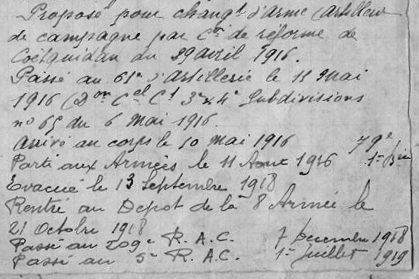 Proposé pour changt d'arme (artillerie
de campagne par Con de réforme de
Coëtquidan du 29 avril 1916.
Passé au 61e d'Artillerie le 11 Mai
1916 (Don Cel Ct 3e & 4e Subdivisions
no 65 du 6 Mai 1916.
Arrivé au corps le 10 Mai 1916
Parti aux Armées le 11 1916
Evacué le 13 Septembre 1918
Rentré au Dépot de la 8 Armée le
21 Octobre 1918
Passé au 209e R.A.C. 7 Décembre 1918
Passé au 5e R.A.C. 1er Juillet 1919